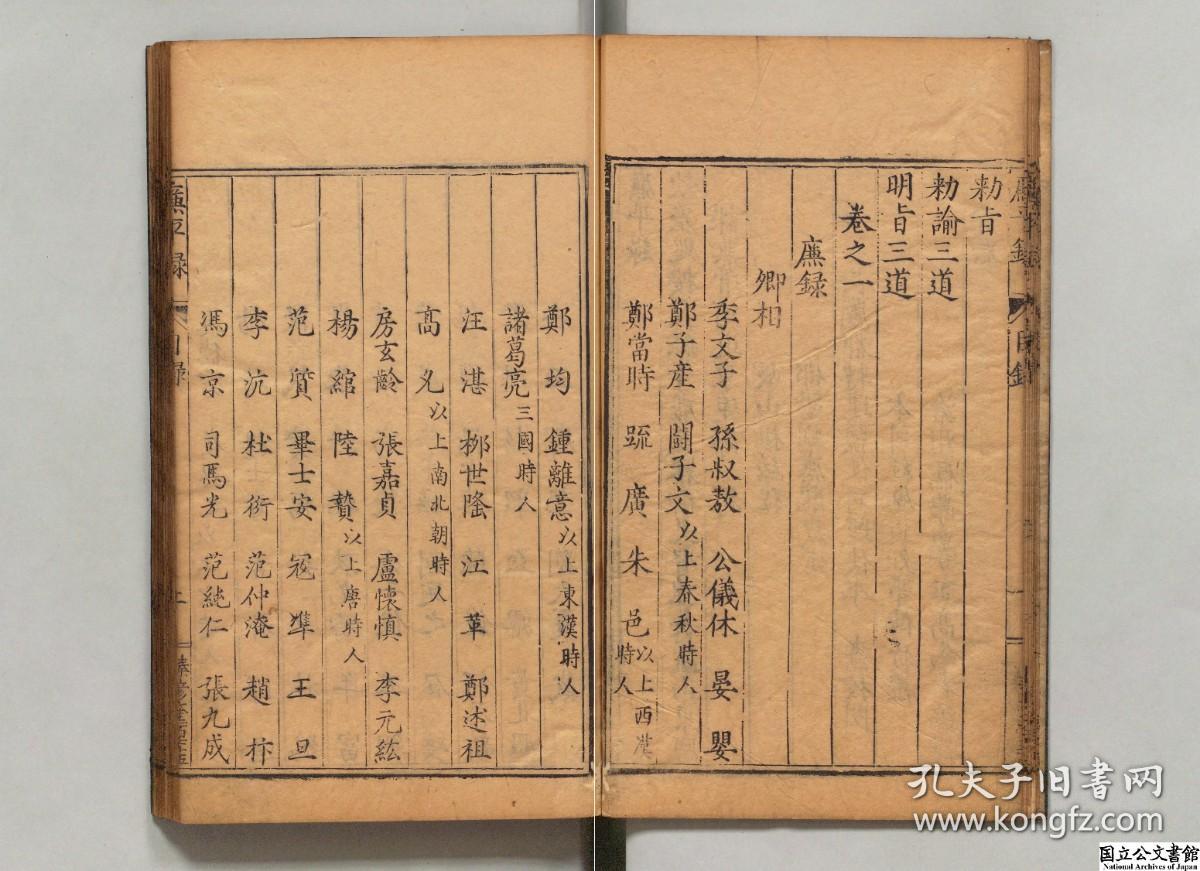 勑旨
勑諭三道
明旨三道
卷之一
廉録
卿相
季文子 孫叔敖 公儀休 晏嬰
鄭子產 鬪子文以上春秋時人
鄭當時 疏廣 朱邑以上西漢時人
鄭均 鍾離意以上東漢時人
諸葛亮三國時人
汪湛 柳世隆 江革 鄭述祖
高允以上南北朝時人
房玄齡 張嘉貞 盧懷慎 李元紘
楊綰 陸贄以上唐時人
范質 畢士安 寇準 王旦
李沆 杜衍 范仲淹 趙抃
馮京 司馬光 范純仁 張九成
廉平録
目録
二
孔夫子旧书网
www.kongfz.com
国立公文書館
National Archives of Japan